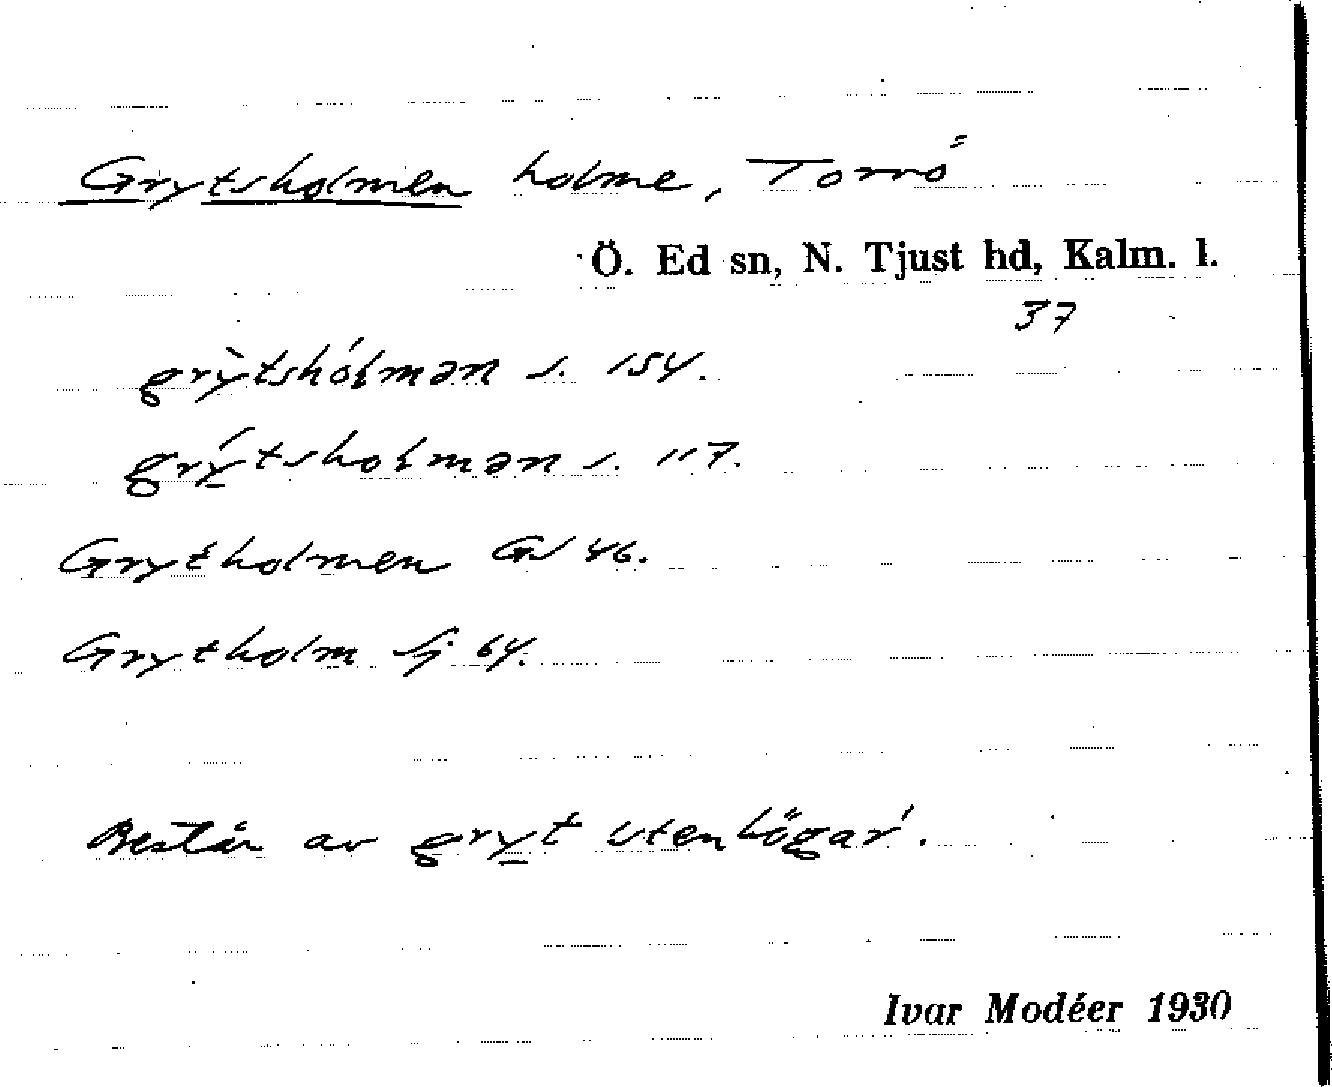 Grytsholmen holme, Torrö
Ö. Ed sn, N. Tjust hd, Kalm. l.
37
gry̆̀tshól̵mən s. 154.
grý̱tshol̵mən s. 117.
Grytholmen GV 46.
Grytholm Sj 64.
Består av gry̱t 'stenhögar'.
Ivar Modéer 1930